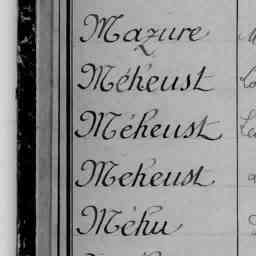 Mazure
Méheust
Méheust
Méheust
Méhu